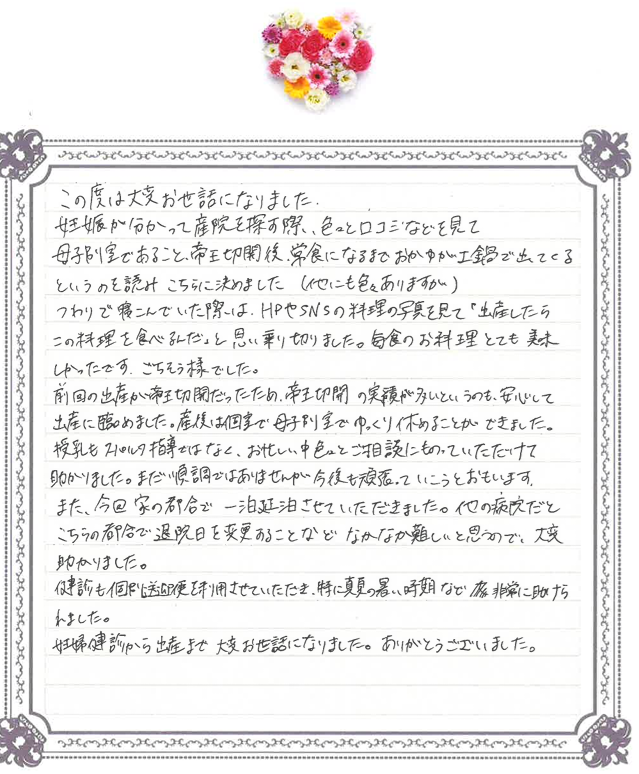 この度は大変お世話になりました.
妊娠が分かって産院を探す際、色々と口コミなどを見て
母子別室であること、帝王切開後、常食になるまでおかゆが土鍋で出てくる
というのを読み こちらに決めました (他にも色々ありますが)
つわりで寝こんでいた際は、HPやSNSの料理の写真を見て「出産したら
この料理を食べるんだ」と思い乗り切りました。毎食のお料理とても美味
しかったです. ごちそう様でした。
前回の出産が帝王切開だったため、帝王切開の実績が多いというのも、安心して
出産に臨めました。産後は個室で母子別室でゆっくり休めることができました。
授乳もスパルタ指導ではなく、お忙しい中色々とご相談にものっていただけて
助かりました。まだ順調ではありませんが今後も頑張っていこうとおもいます.
また、今回 家の都合で 一泊延泊させていただきました。他の病院だと
こちらの都合で退院日を変更することなど なかなか難しいと思うので、大変
助かりました。
健診も個別送迎便を利用させていただき、特に真夏の暑い時期など 非常に助けら
れました。
妊婦健診から出産まで 大変お世話になりました。ありがとうございました。